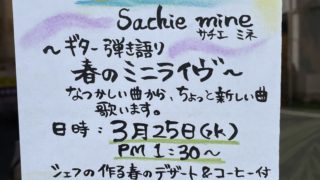 Sachie mine
サチエ ミネ
～ギター弾き語り
春のミニライヴ～
なつかしい曲から、ちょっと新しい曲
歌います。
日時：3月25日(水)
PM 1:30～
シェフの作る春のデザート＆コーヒー付